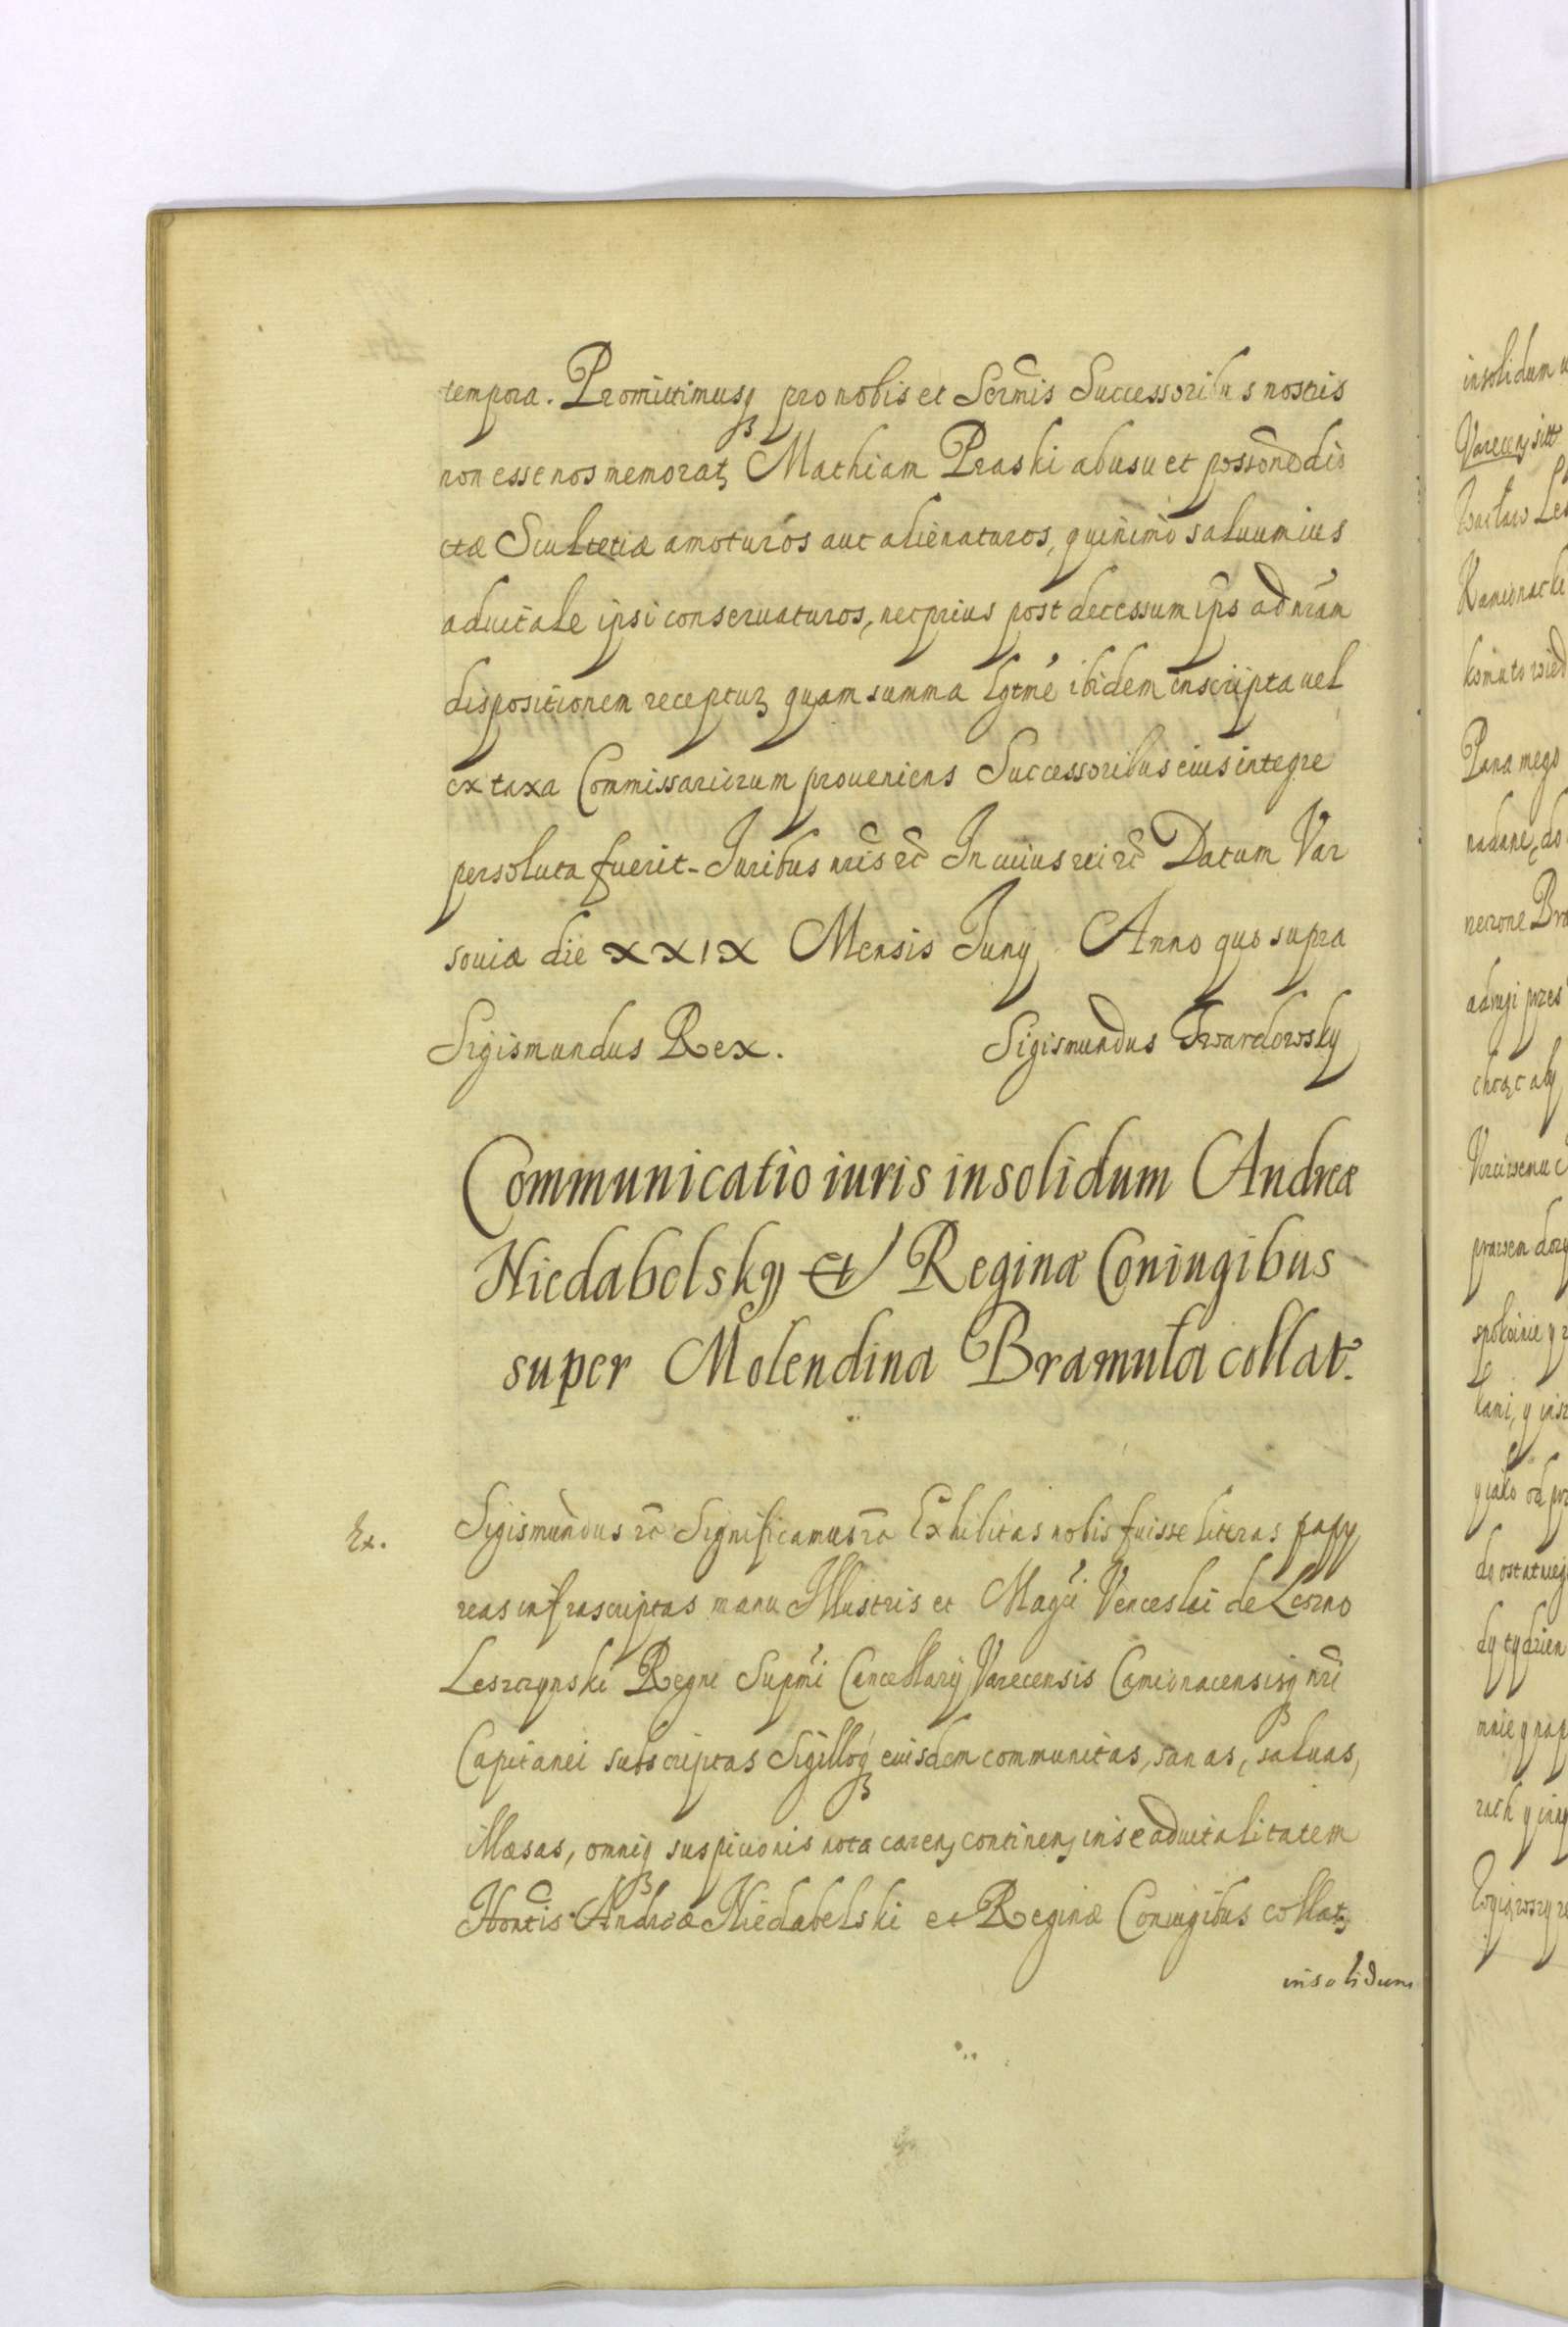 tempora. Promittimusq pro nobis et Sermis Successoribus nostris
non esse nos memorat Mathiam Praski ab usu et possone di
ctæ Scultetiæ amoturos aut alienaturos, quinimo saluum ius
aduitale ipsi conseruaturos, nec prius post decessum ips ad nram
dispositionem receptur quam summa lgtme ibidem inscripta uel
ex taxa Commissariorum proueniens Successoribus eius integre
persoluta fuerit. Iuribus nris etc In cuius rei etc Datum Var
souiæ die XXIX Mensis Iunÿ Anno quo supra
Sigismundus Rex. Sigismundus Twardowsky
Communicatio iuris insolidum Andreæ
Niedabelskÿ et Reginæ Coniugibus
super Molendina Bramuła collat.
Ex. Sigismundus etc Significamus etc Exhibitas nobis fuisse literas papy
reas infrascriptas manu Illustris et Magci Venceslai de Leszno
Leszczynski Regni Supmi Cancellarÿ Varecensis Camionacensisq nri
Capitanei subscriptas Sigilloq eiusdem communitas, sanas, saluas,
illæsas, omniq suspicionis nota caren, continen, in se aduitalitatem
Hontis Andreæ Niedabelski et Reginæ Coniugibus collat
insolidum
insolidum
Pana mego
nadane, do
adrugi przes
chcąc aby